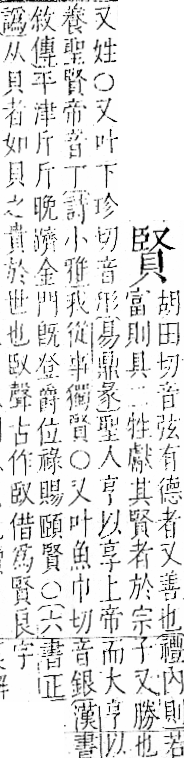 賢
胡田切音弦有德者又善也禮內則若
富則具二牲獻其賢者於宗子又勝也
又姓○又叶下珍切音形易鼎彖聖人亨以享上帝而大亨以
養聖賢帝音丁詩小雅我從事獨賢○又叶魚巾切音銀漢書
敘傳平津斤斤晚躋金門旣登爵位祿賜頤賢○六書正
譌从貝者如貝之貴於世也臤聲古作臤借爲賢良字